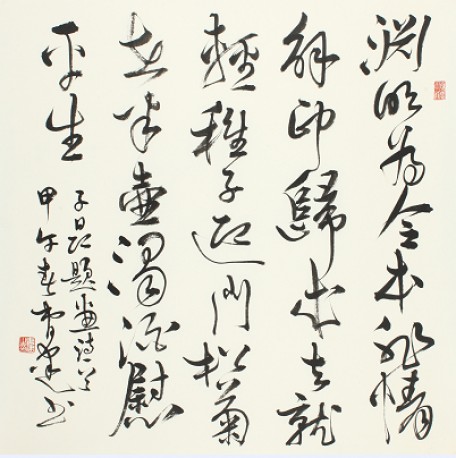 渊明為令本非情
解印歸来去就
輕稚子迎門松菊
在半壶濁酒慰
平生
子昂題畫詩
甲午春書